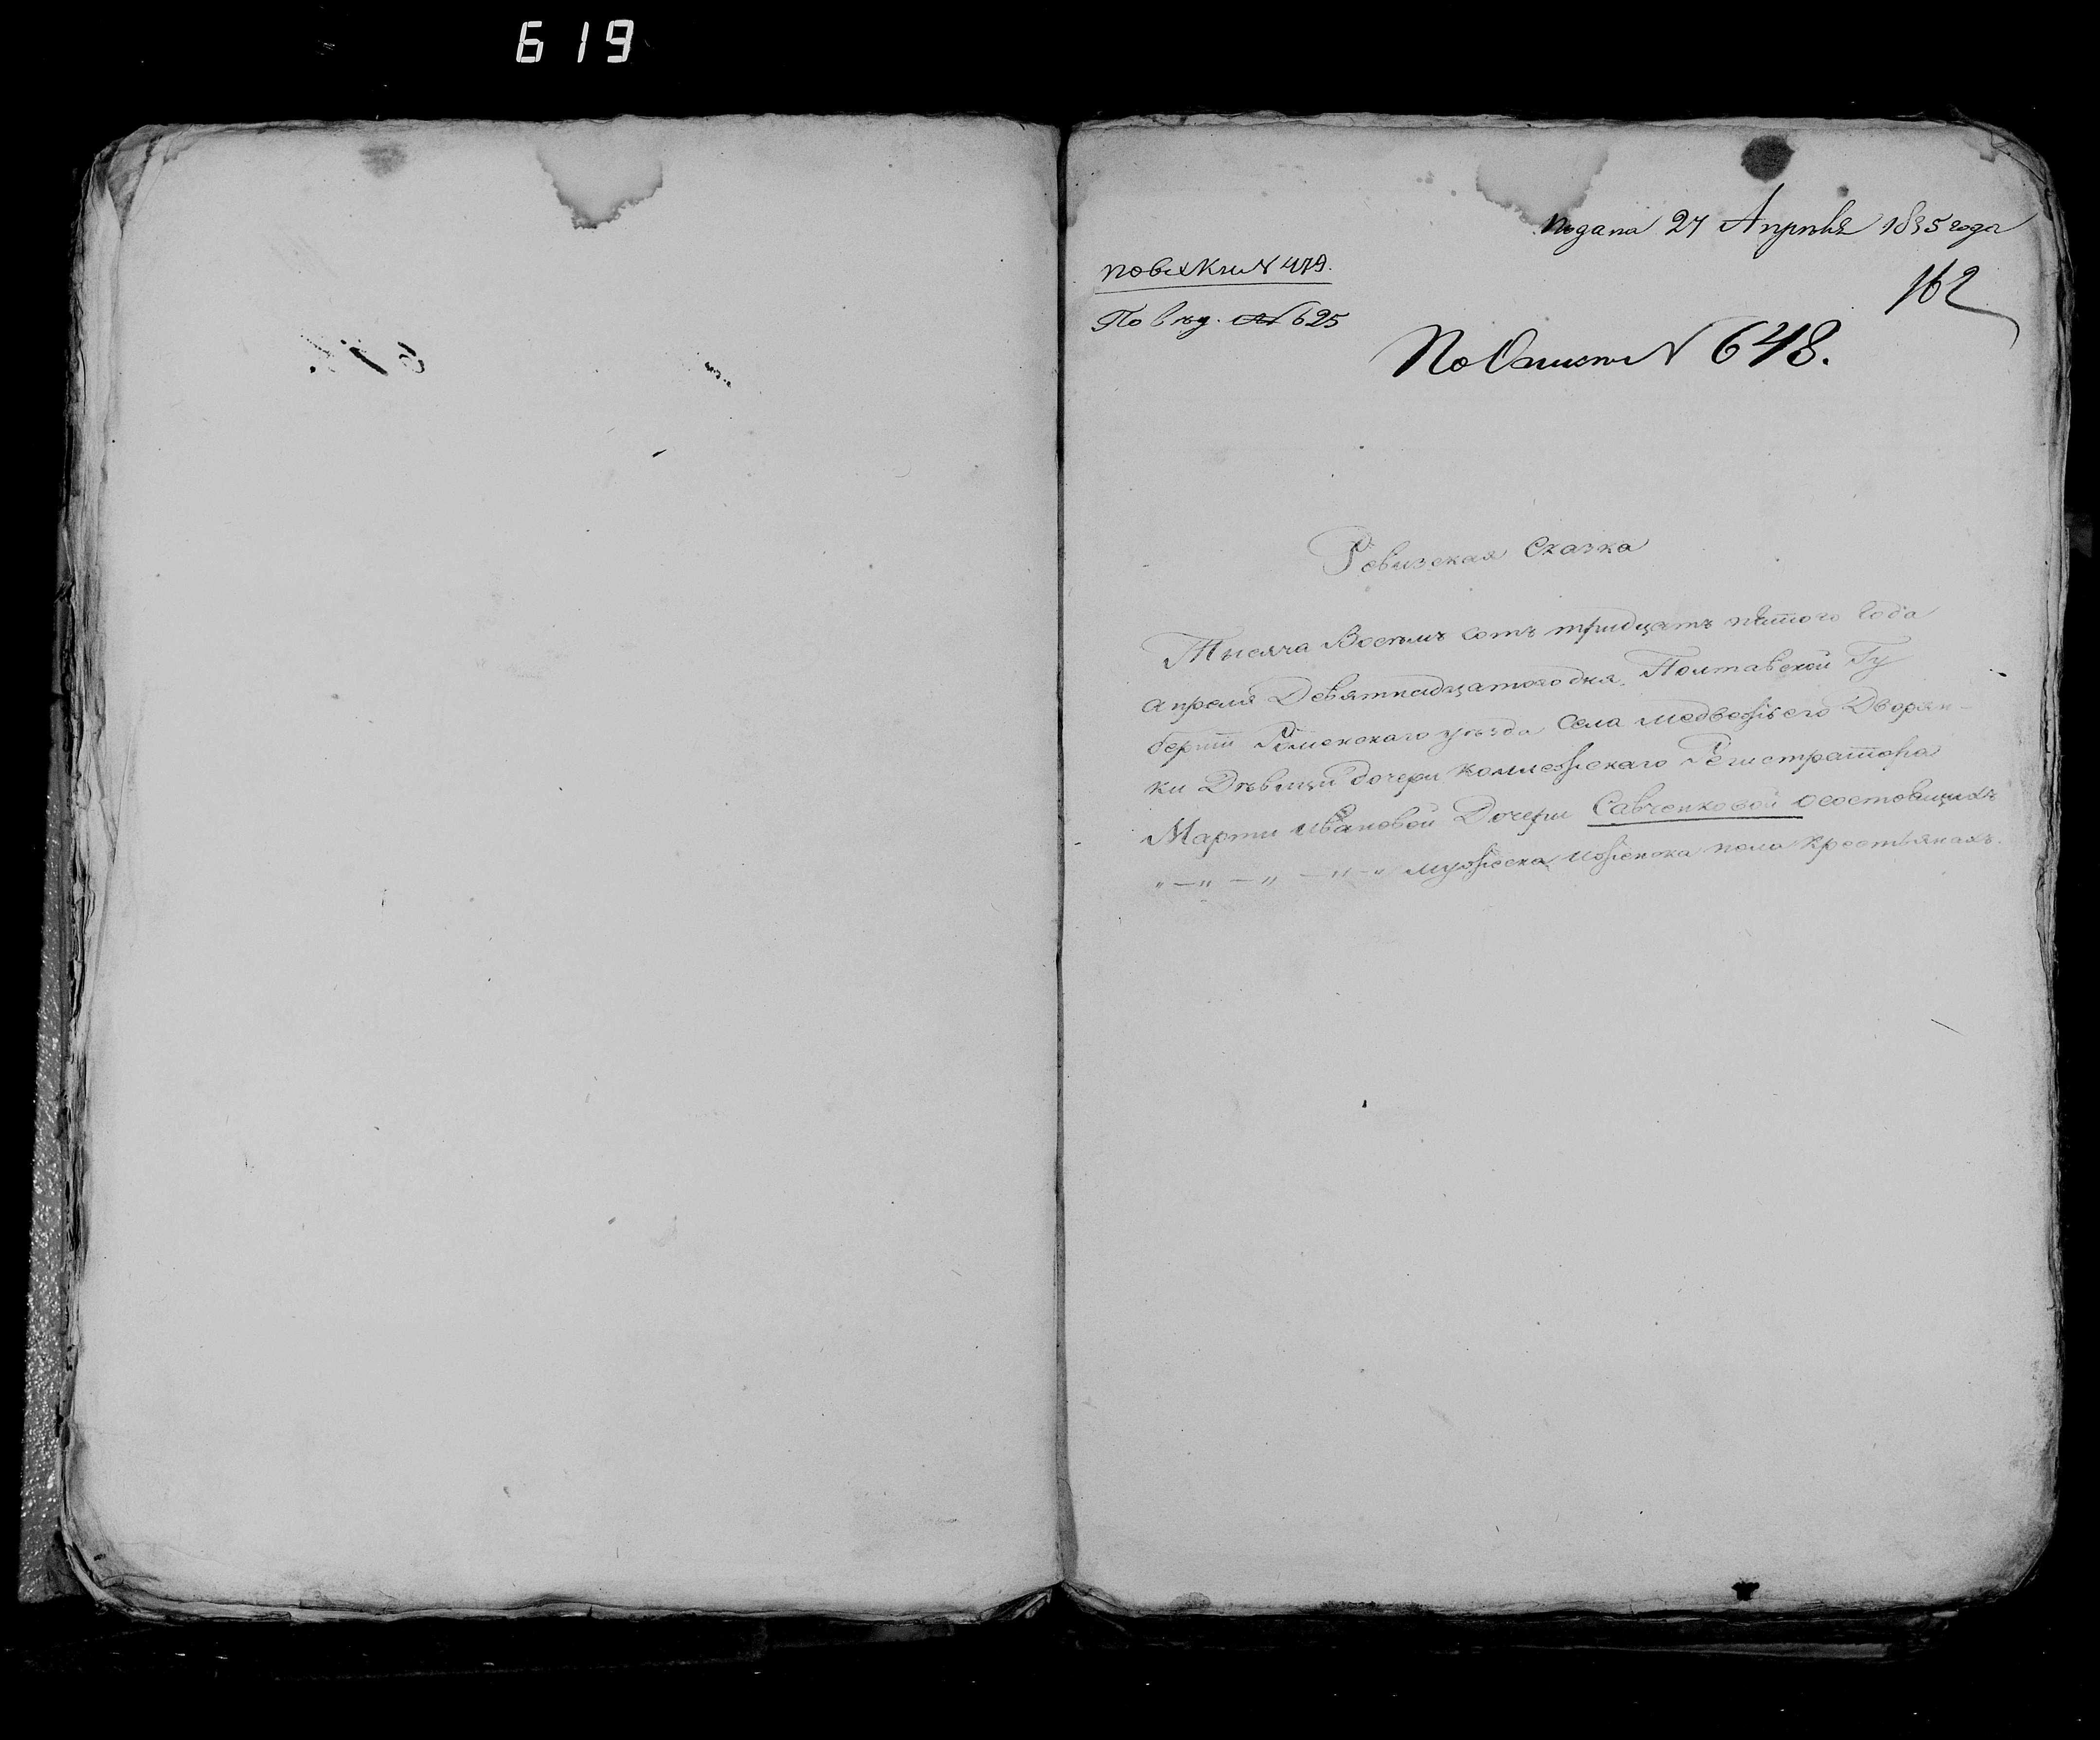 619
подана 27 Апрѣля 1835 года
162
по вх Кни N 479.
По вѣд. N 625
По Описи N 648.
Ревизская Сказка
Тысяча Восемь сотъ тридцать пятого Года
апреля Девятнадцатого дня. Полтавской Гу
берни Роменского уѣзда Села медвежьего Дворян-
ки Дѣвици дочери коллежскаго Регистратора
Марти Ивановой Дочери Савченковой осостоящихъ
" — " — " — " — " мужеска иженска пола крестьянахъ.